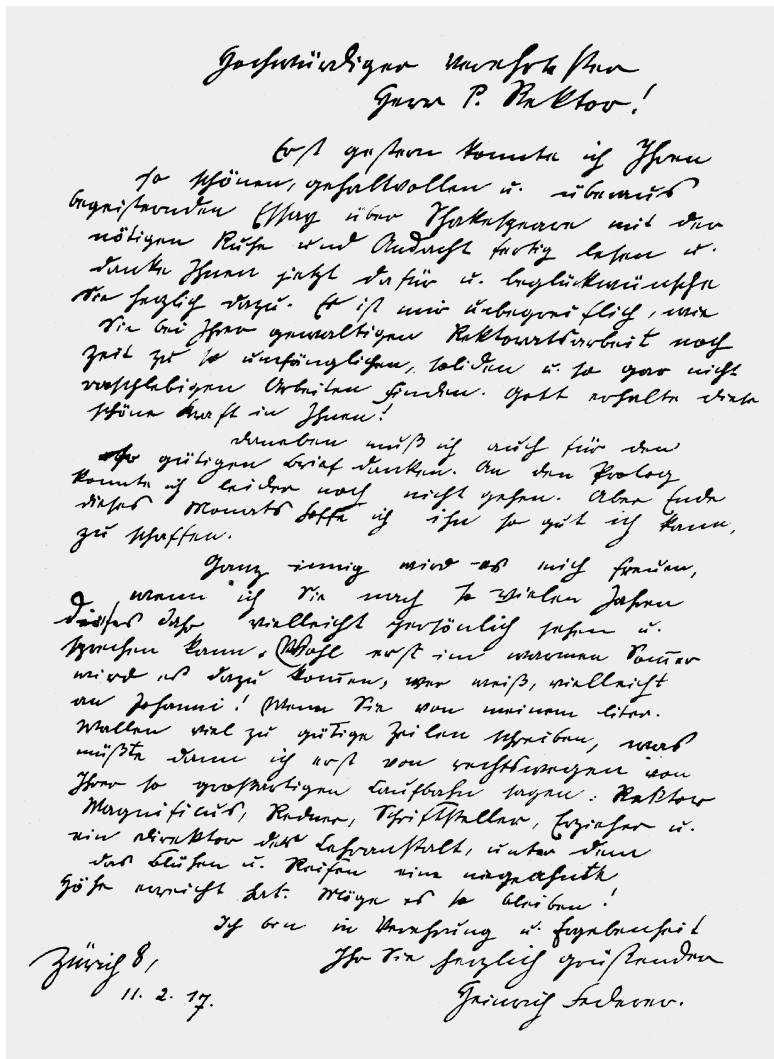 Hochwürdiger verehrtester
Herr P. Rektor!
Erst gestern konnte ich Ihren
so schönen, gehaltvollen u. überaus
begeisternden Essay über Shakespeare mit der
nötigen Ruhe und Andacht fertig lesen u.
danke Ihnen jetzt dafür u. beglückwünsche
Sie herzlich dazu. Es ist mir unbegreiflich, wie
Sie bei Ihrer gewaltigen Rektoratsarbeit noch
Zeit zu so umfänglichen, soliden u. so gar nicht
raschlebigen Arbeiten finden. Gott erhalte diese
schöne Kraft in Ihnen!
Daneben muß ich auch für den
so gütigen Brief danken. An den Prolog
konnte ich leider noch nicht gehen. Aber Ende
dieses Monats hoffe ich ihn so gut ich kann,
zu schaffen.
Ganz innig wird es mich freuen,
wenn ich Sie nach so vielen Jahren
dieses Jahr vielleicht persönlich sehen u.
sprechen kann. Wohl erst im warmen Som̅er
wird es dazu kom̅en, wer weiß, vielleicht
an Johanni! Wenn Sie von meinem liter.
Wallen viel zu gütige Zeilen schreiben, was
müßte dann ich erst von rechtswegen von
Ihrer so großartigen Laufbahn sagen: Rektor
Magnificus, Redner, Schriftsteller, Erzieher u.
ein Direktor der Lehranstalt, unter dem
das Blühen u. Reifen eine ungeahnte
Höhe erreicht hat. Möge es so bleiben!
Ich bin in Verehrung u. Ergebenheit
Ihr Sie herzlich grüßender
Zürich 8,
11. 2. 17.
Heinrich Federer.